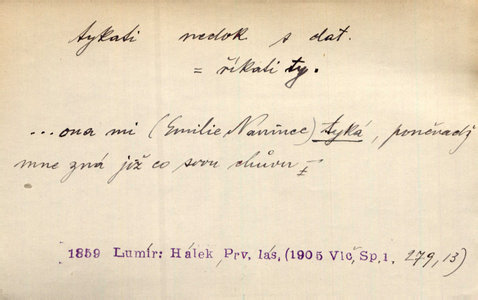 tykati nedok s dat.
= říkati ty.
...ona mi (Emilie, Nanince) tyká, poněvadž
mne zná již co svou chůvu
1859 Lumír: Hálek, Prv. lás, (1905 Vlč, Sp, 1, 279, 13)